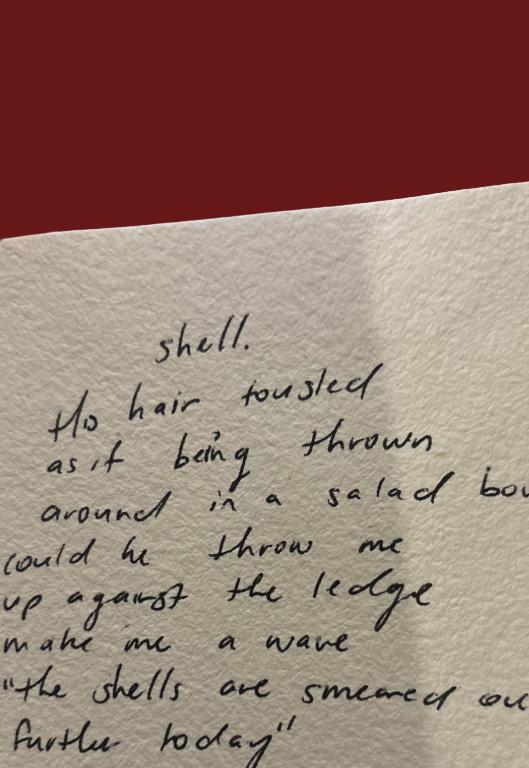 shell.
His hair tousled
as if being thrown
around in a salad
could he throw me
up against the ledge
make me a wave
"the shells are smeared
further today"